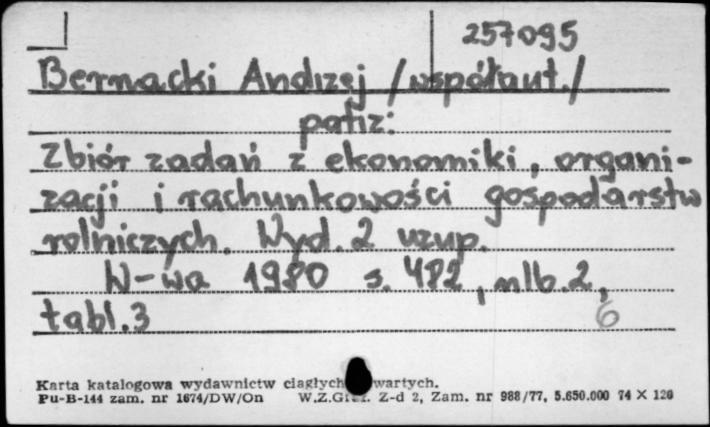 257095
Bernacki Andrzej /współaut./
patrz:
Zbiór zadań z ekonomiki, organi-
zacji i rachunkowości gospodarstw
rolniczych. Wyd. 2 uzup.
W-wa 1980 s. 482, nlb. 2,
tabl. 3
6
Karta katalogowa wydawnictw ciągłych wartych.
Pu-B-144 zam. nr 1674/DW/On W.Z.Graf. Z-d 2, Zam. nr 988/77, 5.650.000 74 X 120